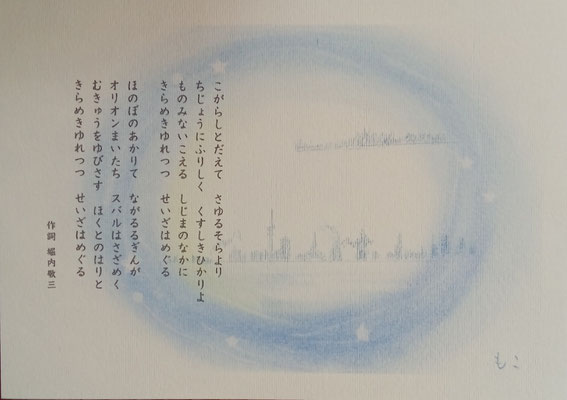 こがらしとだえて　さゆるそらより
ちじょうにふりしく　くすしきひかりよ
ものみないこえる　しじまのなかに
きらめきゆれつつ　せいざはめぐる
ほのぼのあかりて　ながるるぎんが
オリオンまいたち　スバルはさざめく
むきゅうをゆびさす　ほくとのはりと
きらめきゆれつつ　せいざはめぐる
作詞 堀内敬三
もこ